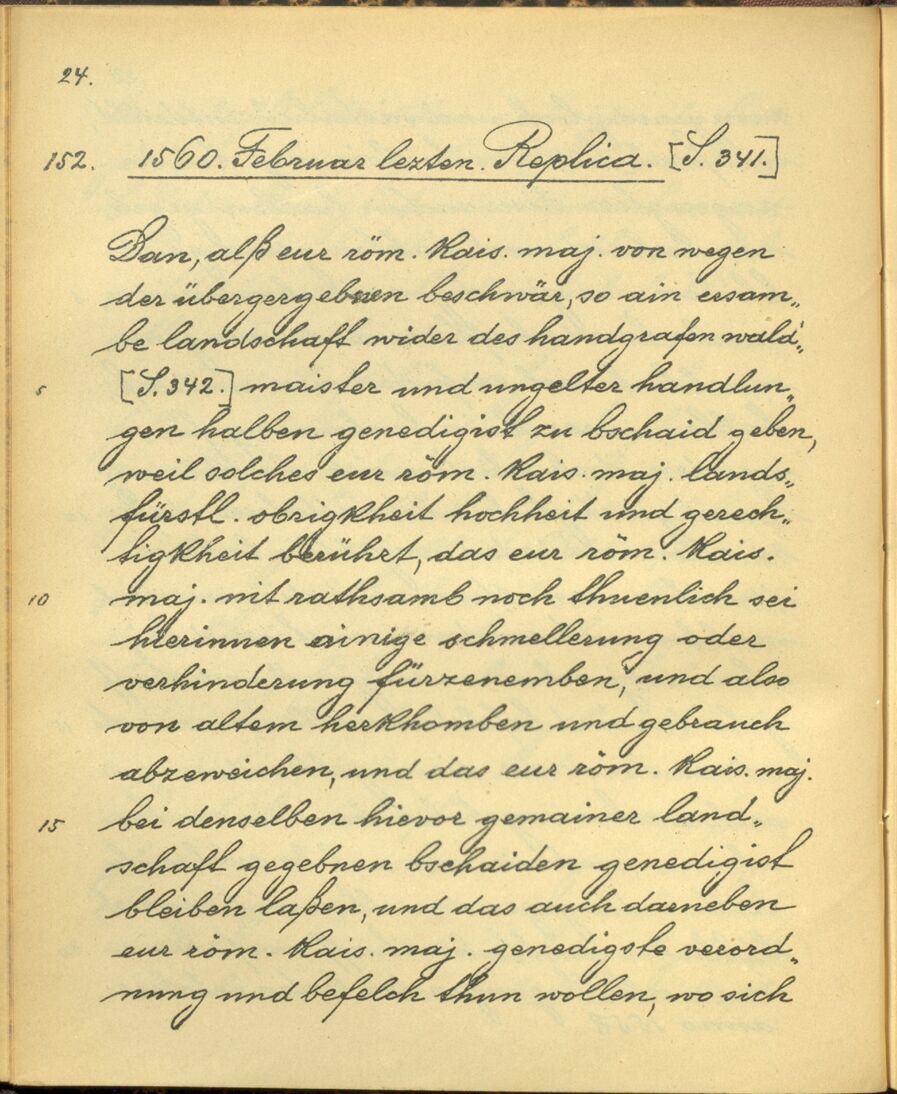 24.
152. 1560. Februar lezten. Replica. [S. 341.]
Dan, alß eur röm. Kais. maj. von wegen
der übergergebnen beschwär, so ain ersam„
be landschaft wider des handgrafen wald„
5 [S. 342.] maister und ungelter handlun„
gen halben genedigist zu bschaid geben,
weil solches eur röm. Kais. maj. lands„
fürstl. obrigkheit hochheit und gerech„
tigkheit berührt, das eur röm. Kais.
10 maj. nit rathsamb noch thuenlich sei
hierinnen einige schmellerung oder
verhinderung fürzenemben, und also
von altem herkhomben und gebrauch
abzeweichen, und das eur röm. Kais. maj.
15 bei denselben hievor gemainer land„
schaft gegebnen bschaiden genedigist
bleiben laßen, und das auch darneben
eur röm. Kais. maj. genedigste verord„
nung und befelch thun wollen, wo sich